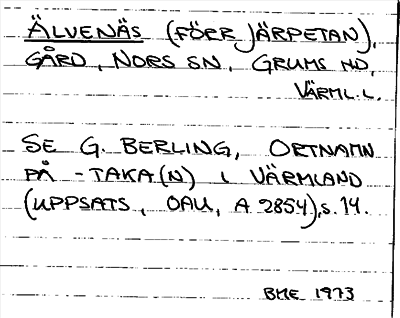 ÄLVENÄS (FÖRR JÄRPETAN),
GÅRD, NORS SN, GRUMS HD,
VÄRML.L.
SE G. BERLING, ORTNAMN
PÅ -TAKA(N) I VÄRMLAND
(UPPSATS, OAU, A 2854), s. 14.
BME 1973